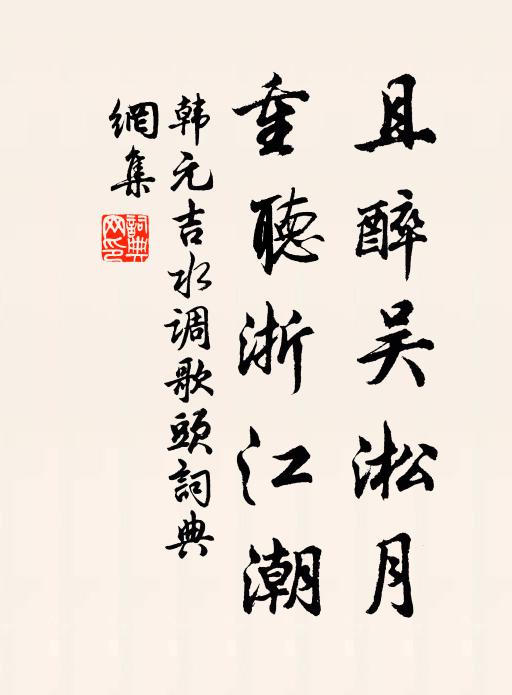 且醉吴淞月
重聽浙江潮
韩元吉水调歌頭詞典
網集
詞典
网印